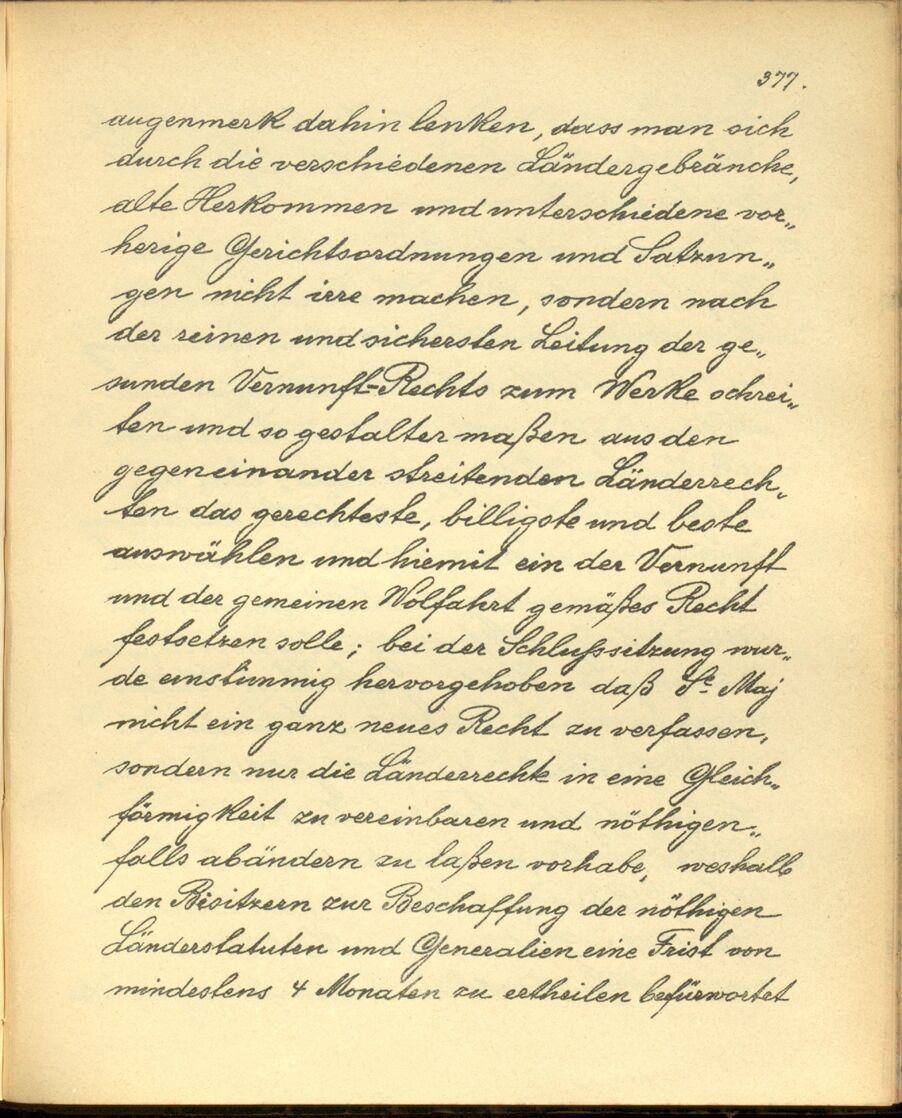 377.
augenmerk dahin lenken, dass man sich
durch die verschiedenen Ländergebräuche,
alte Herkommen und unterschiedene vor„
herige Gerichtsordnungen und Satzun„
gen nicht irre machen, sondern nach
der reinen und sichersten Leitung der ge„
sunden Vernunft-Rechts zum Werke schrei„
ten und so gestalter maßen aus den
gegeneinander streitenden Länderrech„
ten das gerechteste, billigste und beste
auswählen und hiemit ein der Vernunft
und der gemeinen Wolfahrt gemäßes Recht
festsetzen solle; bei der Schlußsitzung wur„
de einstimmig hervorgehoben daß St. Maj
nicht ein ganz neues Recht zu verfassen,
sondern nur die Länderrechte in eine Gleich„
förmigkeit zu vereinbaren und nöthigen„
falls abändern zu laßen vorhabe, weshalb
den Bisitzern zur Beschaffung der nöthigen
Länderstatuten und Generalien eine Frist von
mindestens 4 Monaten zu ertheilen befürwortet